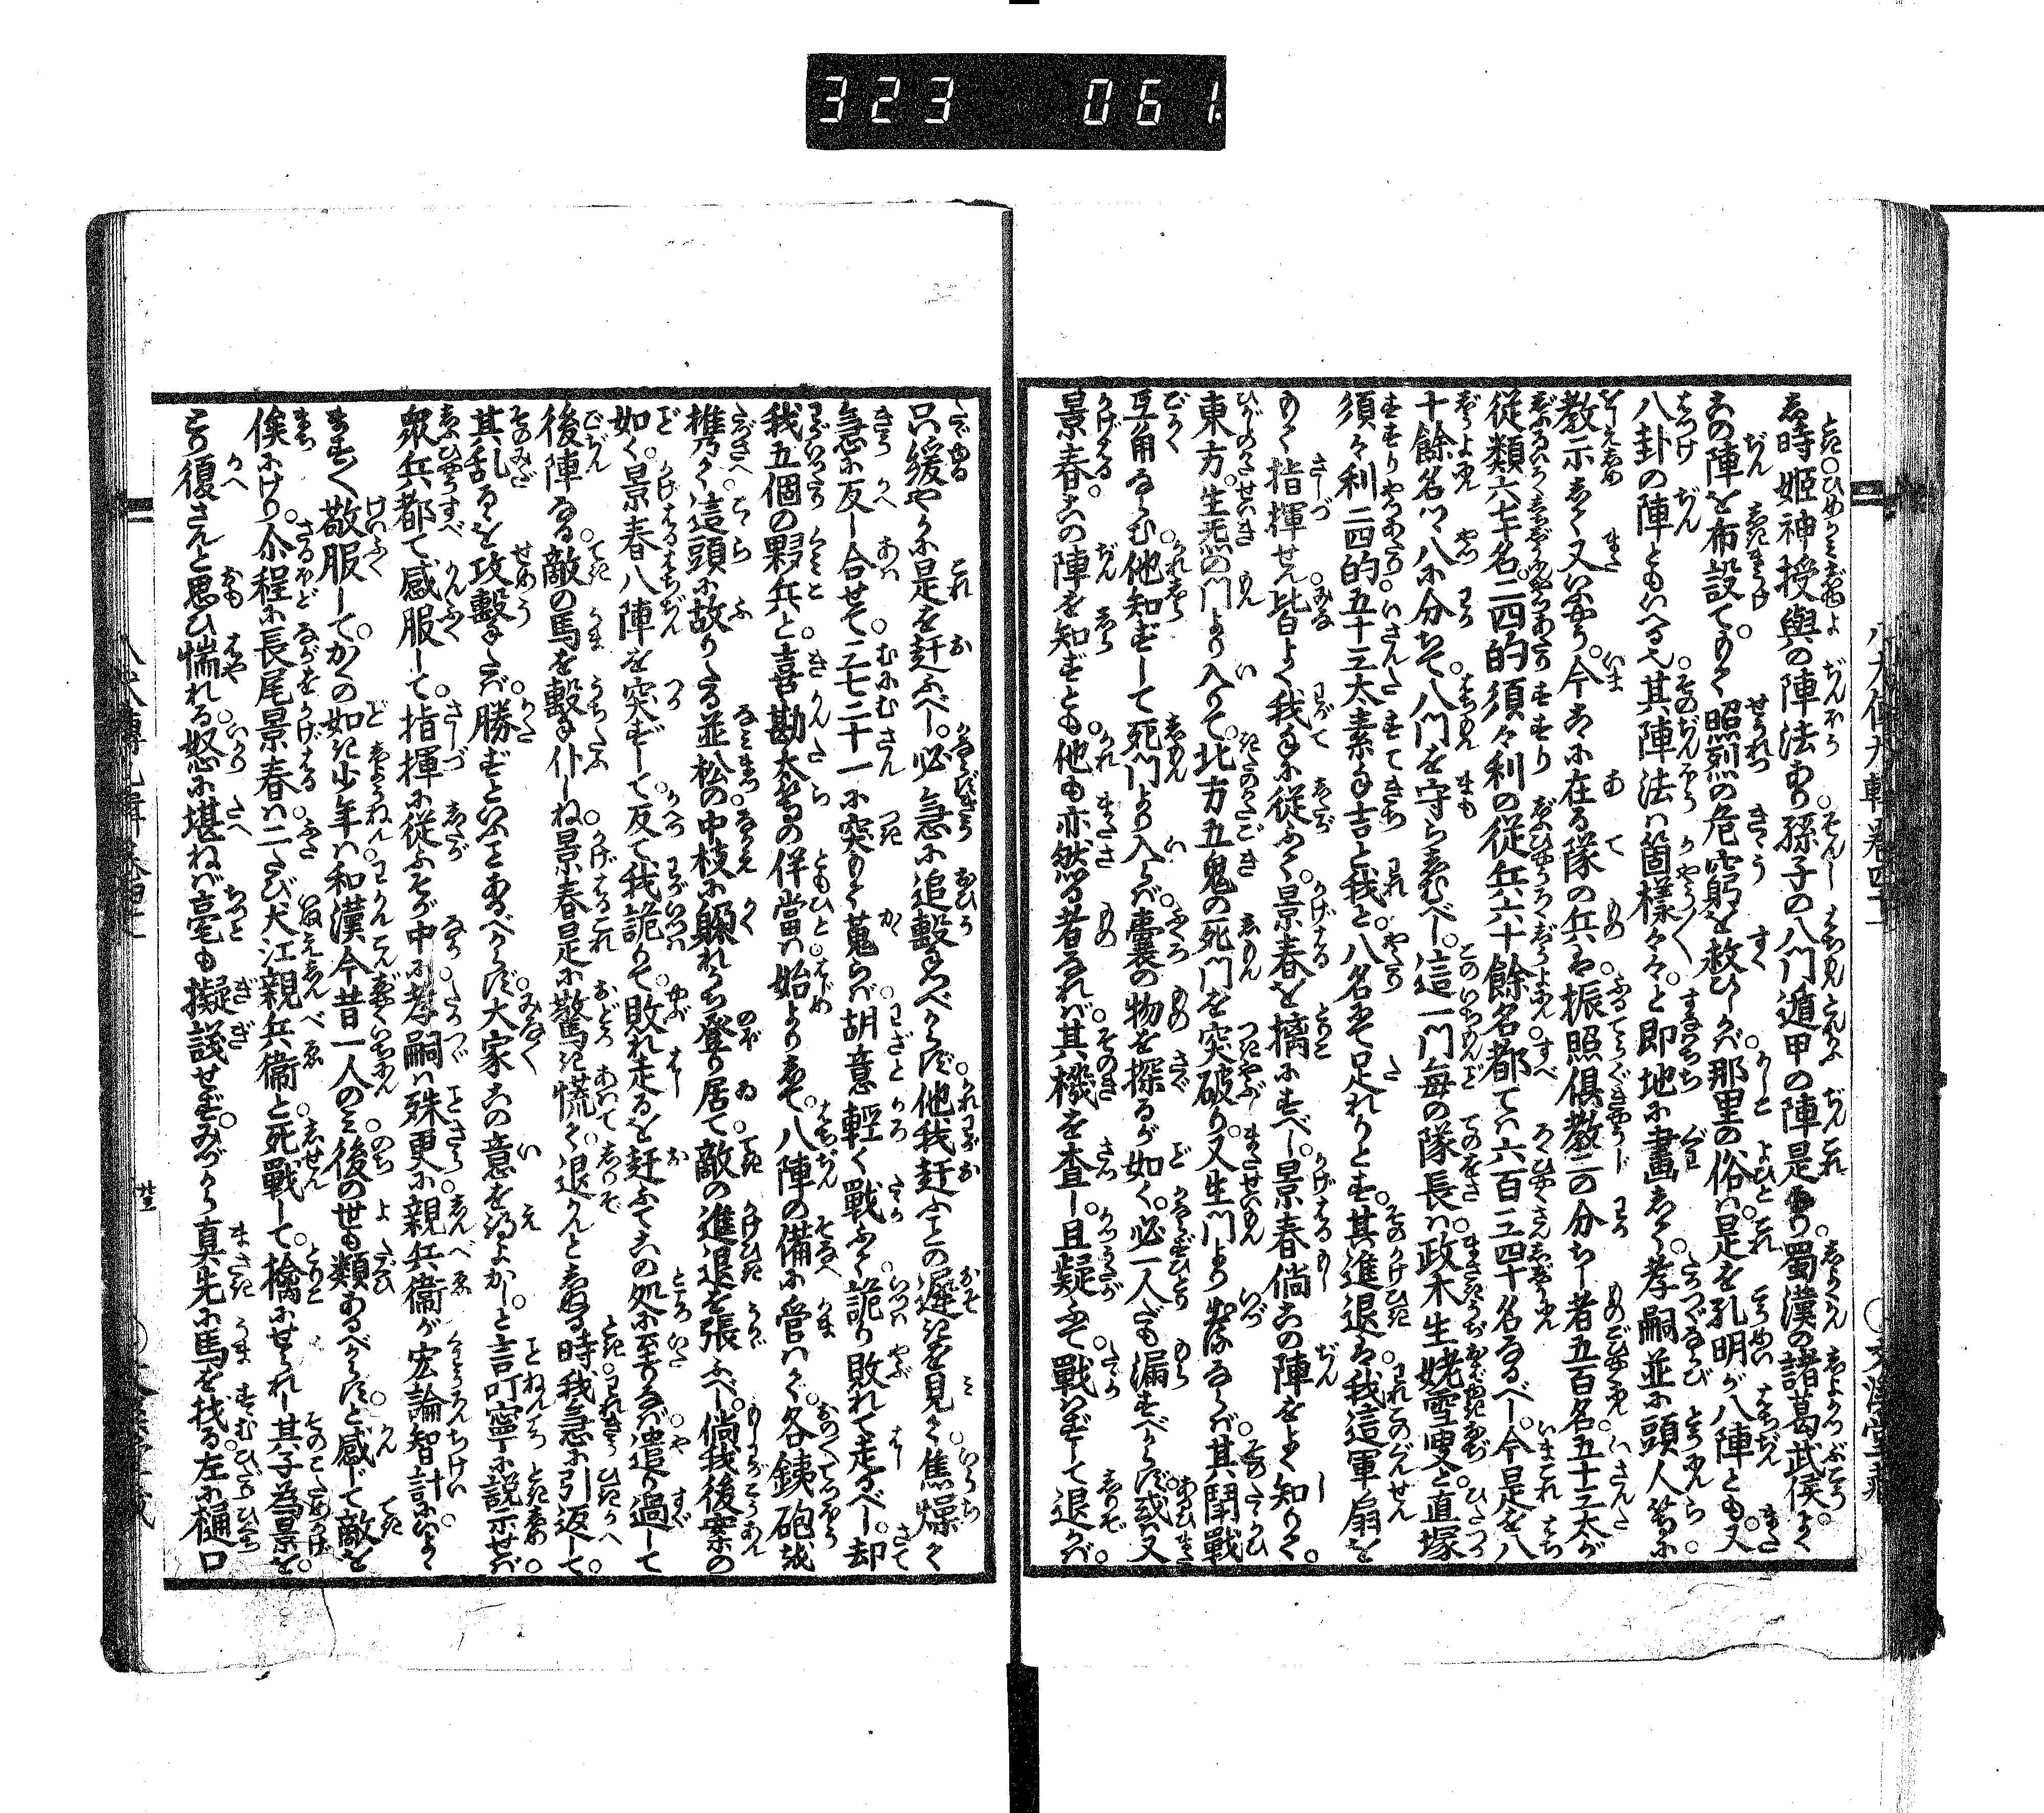 323 061
八犬傳九輯巻四十二
文溪堂藏
し時姫神授與の陣法あり孫子の八門遁甲の陣是なり蜀漢の諸葛武侯よく
この陣を布設てもて照烈の危窮を救ひしかバ那里の俗ハ是を孔明が八陣とも又
八卦の陣ともいへる也其陣法ハ箇様々々と即地に畫して孝嗣並に頭人等に
教示して又いふやう今こゝに在る隊の兵を振照倶教二の分ちし者五百名五十三太が
従類六七十名二四的須々利の従兵六十餘名都てハ六百三四十名なるべし今是を八
十餘名ツヽ八に分ちて八門を守らしむべし這一門毎の隊長ハ政木生姥雪叟と直塚
須々利二四的五十三太素手吉と我と八名にて足れりとす其進退ハ我這軍扇を
もて指揮せん皆よく我手に従ふて景春を擒にすべし景春倘この陣をよく知りて
東方生氣の門より入りて北方五鬼の死門を突破り又生門より出るならバ其鬪戰
互角ならむ他知ずして死門より入らバ嚢の物を探るが如く必一人だも漏すべからず或ハ又
景春この陣を知ずとも他も亦然る者なれバ其機を査し且疑ふて戰ハずして退かバ
只緩やかに是を赶ふべし必急に追撃すべからず他我赶ふことの遲きを見て焦燥て
急に反し合せて三七二十一に突もて蒐らバ胡意輕く戰ふて詭り敗れて走るべし却
我五個の夥兵と喜勘太等の伴當ハ始より出て八陣の備に管ハで各銕砲を
携て這頭に故りたる並松の中枝に躱れうち登り居て敵の進退を張ふべし倘我後案の
如く景春八陣を突ずして反て我詭りて敗れ走るを赶ふてこの処に至りなバ遣り過して
後陣なる敵の馬を撃仆しね景春是に驚き慌て退かんとしぬる時我急に引返して
其乱るゝを攻撃てバ勝ずといふことあるべからず大家この意を得よかしと言叮寧に説示せバ
衆兵都て感服して指揮に従ふそが中に孝嗣ハ殊更に親兵衞が宏論智計にいよゝ
ますく敬服してかくの如き少年ハ和漢今昔一人のミ後の世も類あるべからずと感じて敵を
俟にけり尒程に長尾景春ハ二たび犬江親兵衞と死戰して擒にせられし其子為景を
とり復さんと思ひ惴れる怒に堪ねバ毫も擬議せずみづから真先に馬を找る左に樋口